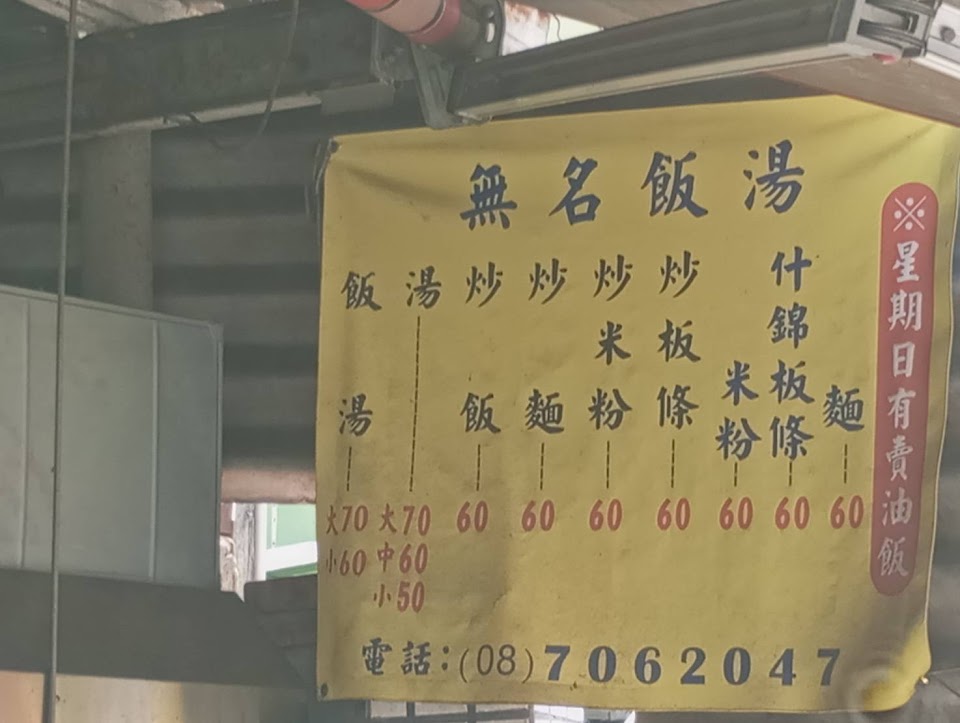 無名飯湯
飯湯 大70 小60
湯 大70 中60 小50
炒飯 60
炒麵 60
炒米粉 60
炒板條 60
什錦
米粉 60
板條 60
麵 60
※星期日有賣油飯
電話:(08)7062047